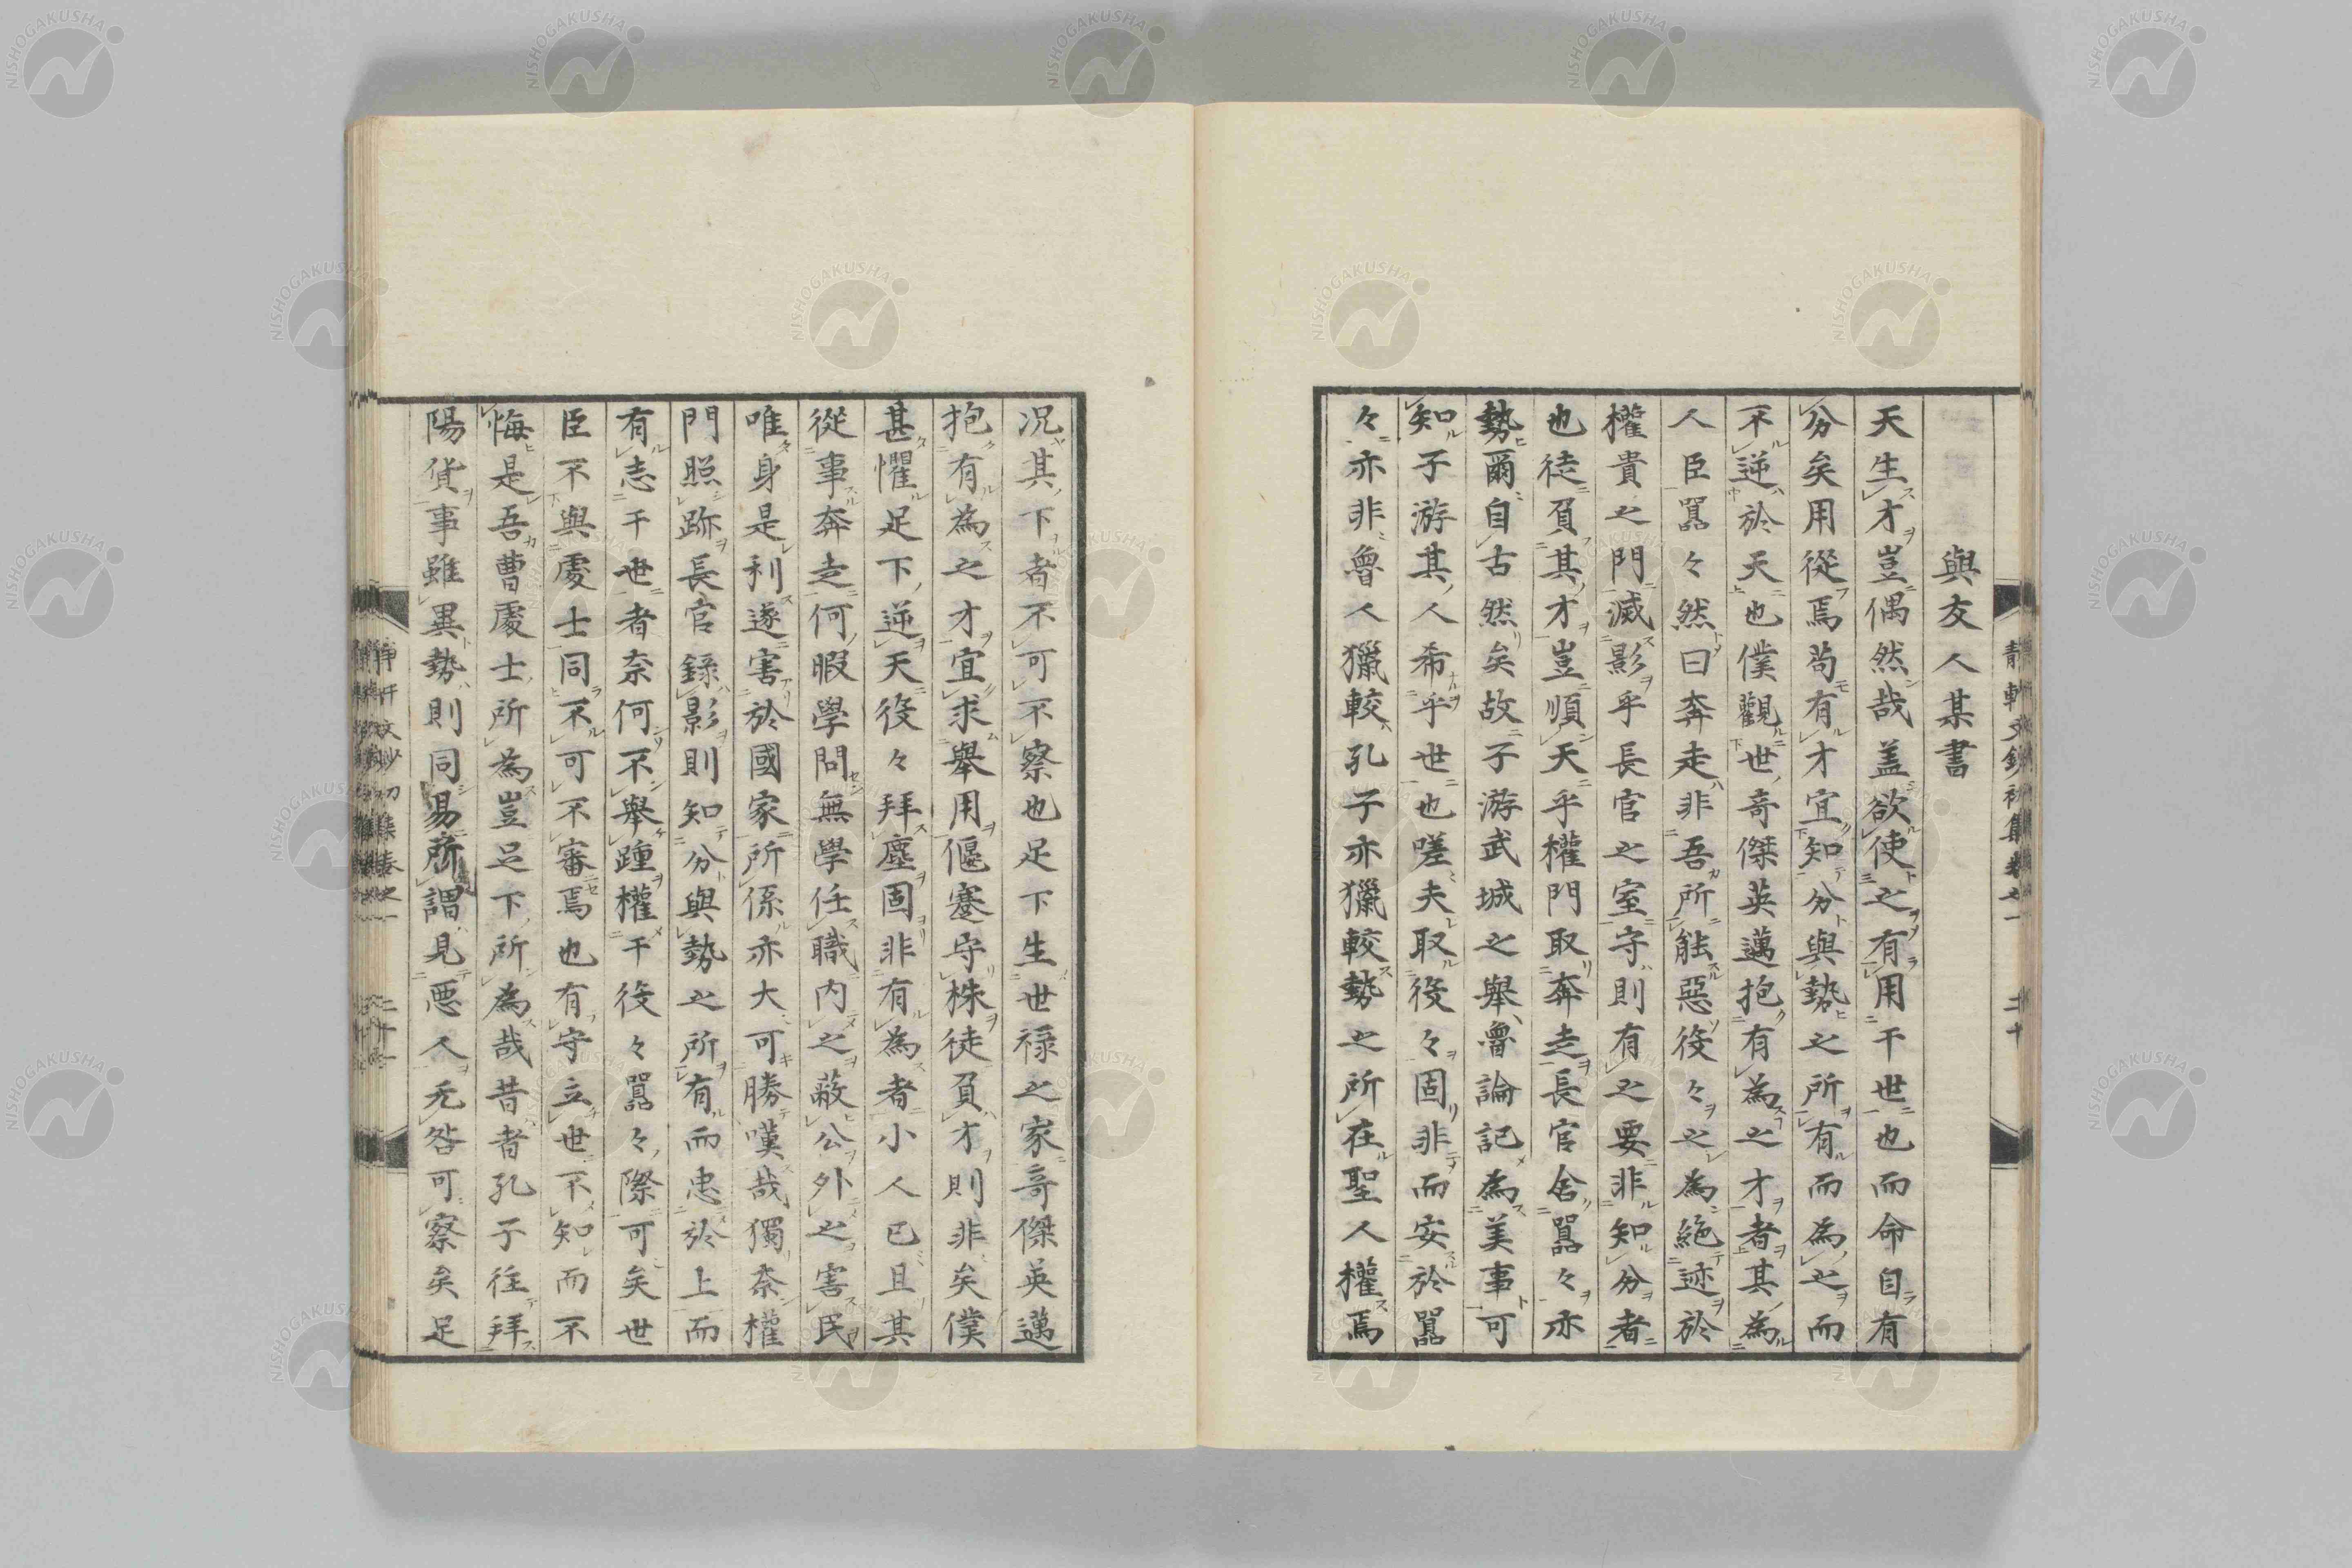 與友人某書
天生才豈偶然哉盖欲使之有用干世也而命自有
分矣用從焉苟有才宜知分與勢之所有而為之而
不逆於天也僕觀世竒傑英邁抱有為之才者其為
人臣囂々然曰奔走非吾所能惡役々之為絶迹於
權貴之門滅影乎長官之室守則有之要非知分者
也徒負其才豈順天乎權門取奔走長官舍囂々亦
勢爾自古然矣故子游武城之舉魯論記為美事可
知子游其人希乎世也嗟夫取役々固非而安於囂
々亦非魯人獵較孔子亦獵較勢之所在聖人權焉
况其下者不可不察也足下生世禄之家竒傑英邁
抱有為之才宜求舉用偃蹇守株徒負才則非矣僕
甚懼足下逆天役々拜塵固非有為者小人已且其
從事奔走何暇學問無學任職内之蔽公外之害民
唯身是利遂害於國家所係亦大可勝嘆哉獨柰權
門照跡長官錄影則知分與勢之所有而忠於上而
有志干世者奈何不舉踵權干役々囂々際可矣世
臣不與處士同不可不審焉也有守立世不知而不
悔是吾曹處士所為豈足下所為哉昔者孔子往拜
陽貨事雖異勢則同易所謂見悪人无咎可察矣足
NISHOGAKUSHA